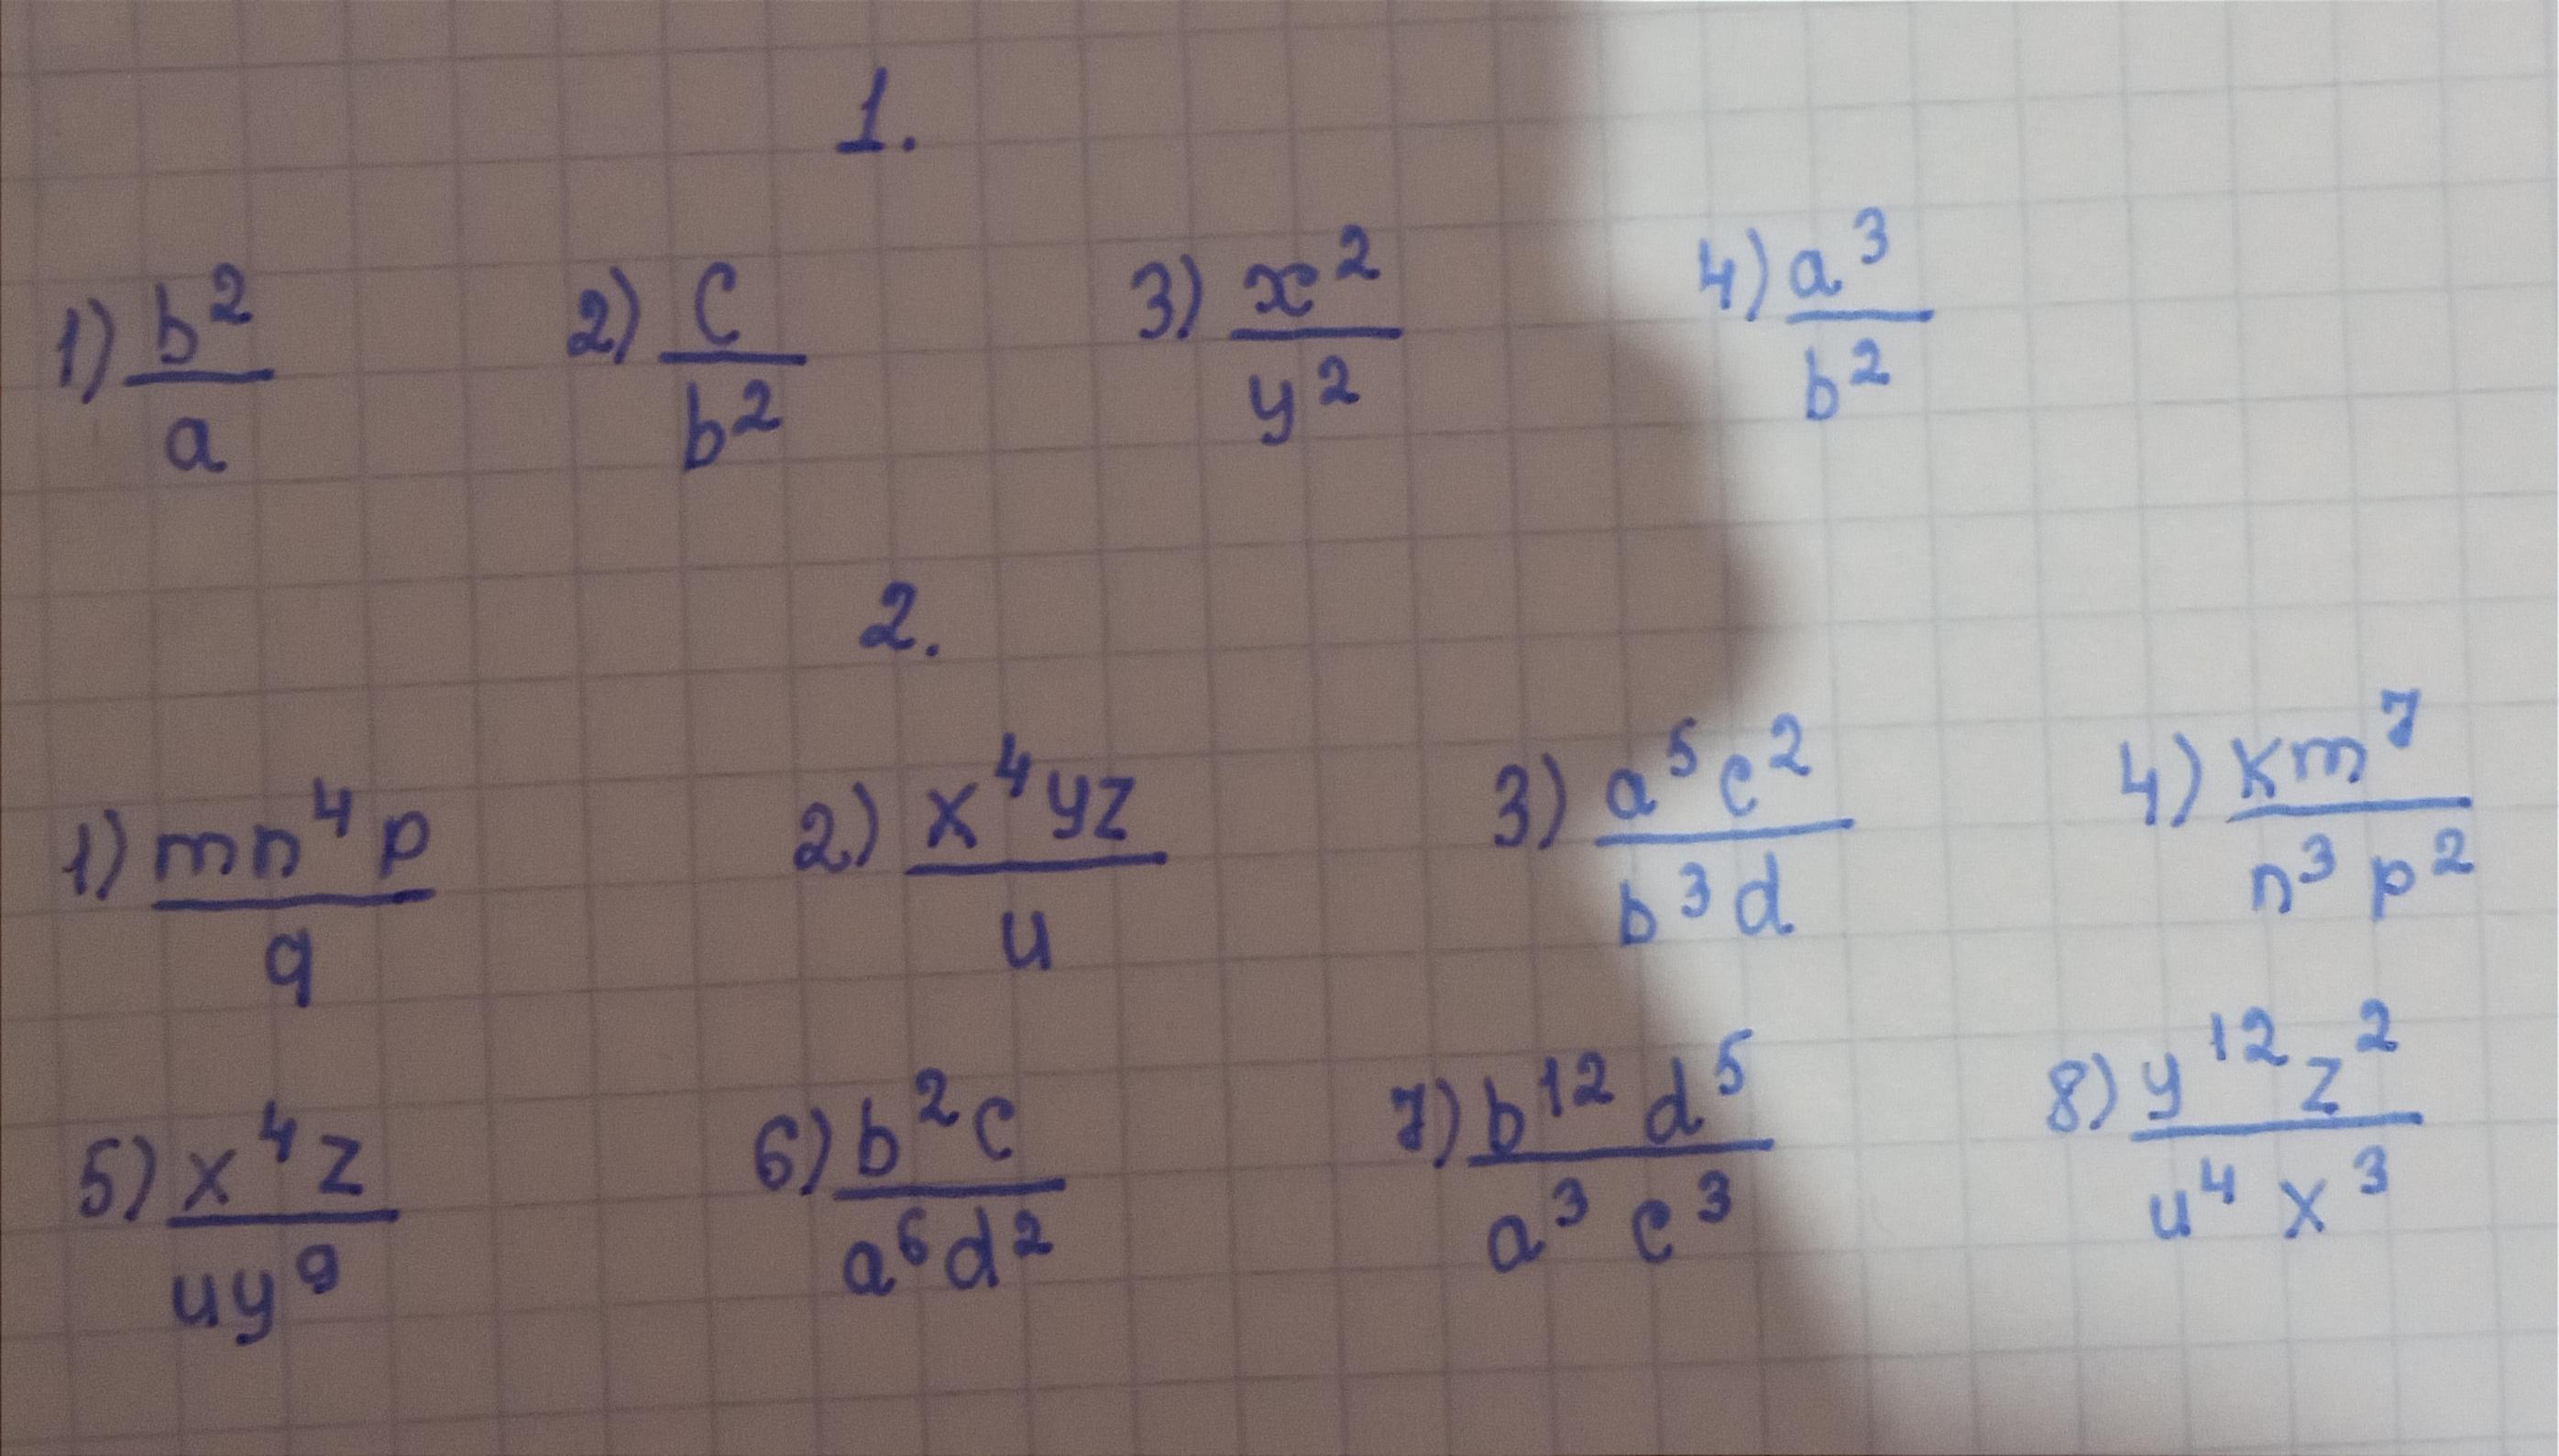 1.
1) b²/a 2) c/b² 3) x²/y² 4) a³/b²
2.
1) mn⁴p/q 2) x⁴yz/u 3) a⁵c²/b³d 4) km⁷/n³p²
5) x⁴z/uy⁹ 6) b²c/a⁶d² 7) b¹²d⁵/a³c³ 8) y¹²z²/u⁴x³